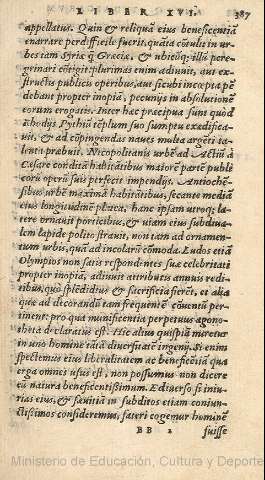 LIBER XVI. 387
appellatus. Quin & reliquā eius beneficentiā
enarrare perdifficile fuerit, quāta cōtulit in ur-
bes tam Syriæ q̃ Græciæ, & ubicūq; illi pere-
grinari cōtigit: plurimas enim adiuuit, aut ex-
structis publicis operibus, aut sicubi incœpta pē
debāt propter inopiā, pecunijs in absolutionē
eorum erogatis. Inter hæc præcipua sunt quod
& Rhodijs Pythiū tēplum suo sumptu exædifica-
uit, & ad cōpingendas naues multa argēti ta-
lenta præbuit. Nicopolitanis urbē ad Actiū à
Cæsare conditā habitātibus maiorē partē publi
corū operū suis perfecit impendijs. Antioche-
sibus urbē maximā habitātibus, secante mediā
eius longitudinē platea, hanc ipsam utroq; la-
tere ornauit porticibus, & uiam eius subdiua-
lem lapide polito strauit, non tam ad ornamen-
tum urbis, quā ad incolarū cōmoda. Ludos etiā
Olympios non satis respondentes suæ celebritati
propter inopiā, adiuuit attributis annuis redi-
tibus, quo splēdidius & sacrificia fierēt, et alia
quæ ad decorandū tam frequentē cōuentū per-
tinent: pro qua munificentia perpetuus agono-
theta declaratus est. Hic alius quispiā miretur
in uno homine tātā diuersitatē ingenij. Si enim
spectemus eius liberalitatem ac beneficētiā qua
erga omneis usus est, non possumus non dicere
eū natura beneficentissimum. E diuerso si iniu-
rias eius, & sæuitiā in subditos etiam coniun-
ctissimos consideremus, fateri cogemur hominē
BB 2 fuisse
Ministerio de Educación, Cultura y Deporte